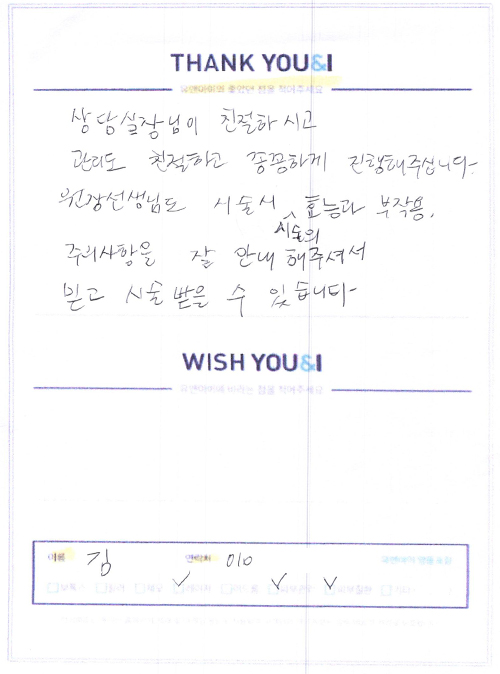 THANK YOU&I
유앤아이의 좋았던 점을 적어주세요
상담실장님이 친절하시고
관리도 친절하고 꼼꼼하게 진행해주십니다.
원장선생님도 시술시 시술의 효능과 부작용,
주의사항을 잘 안내 해주셔서
믿고 시술 받을 수 있습니다.
WISH YOU&I
유앤아이에 바라는 점을 적어주세요
이름 김 연락처 010
보톡스 필러 제모 레이저 여드름 피부관리 피부질환 기타